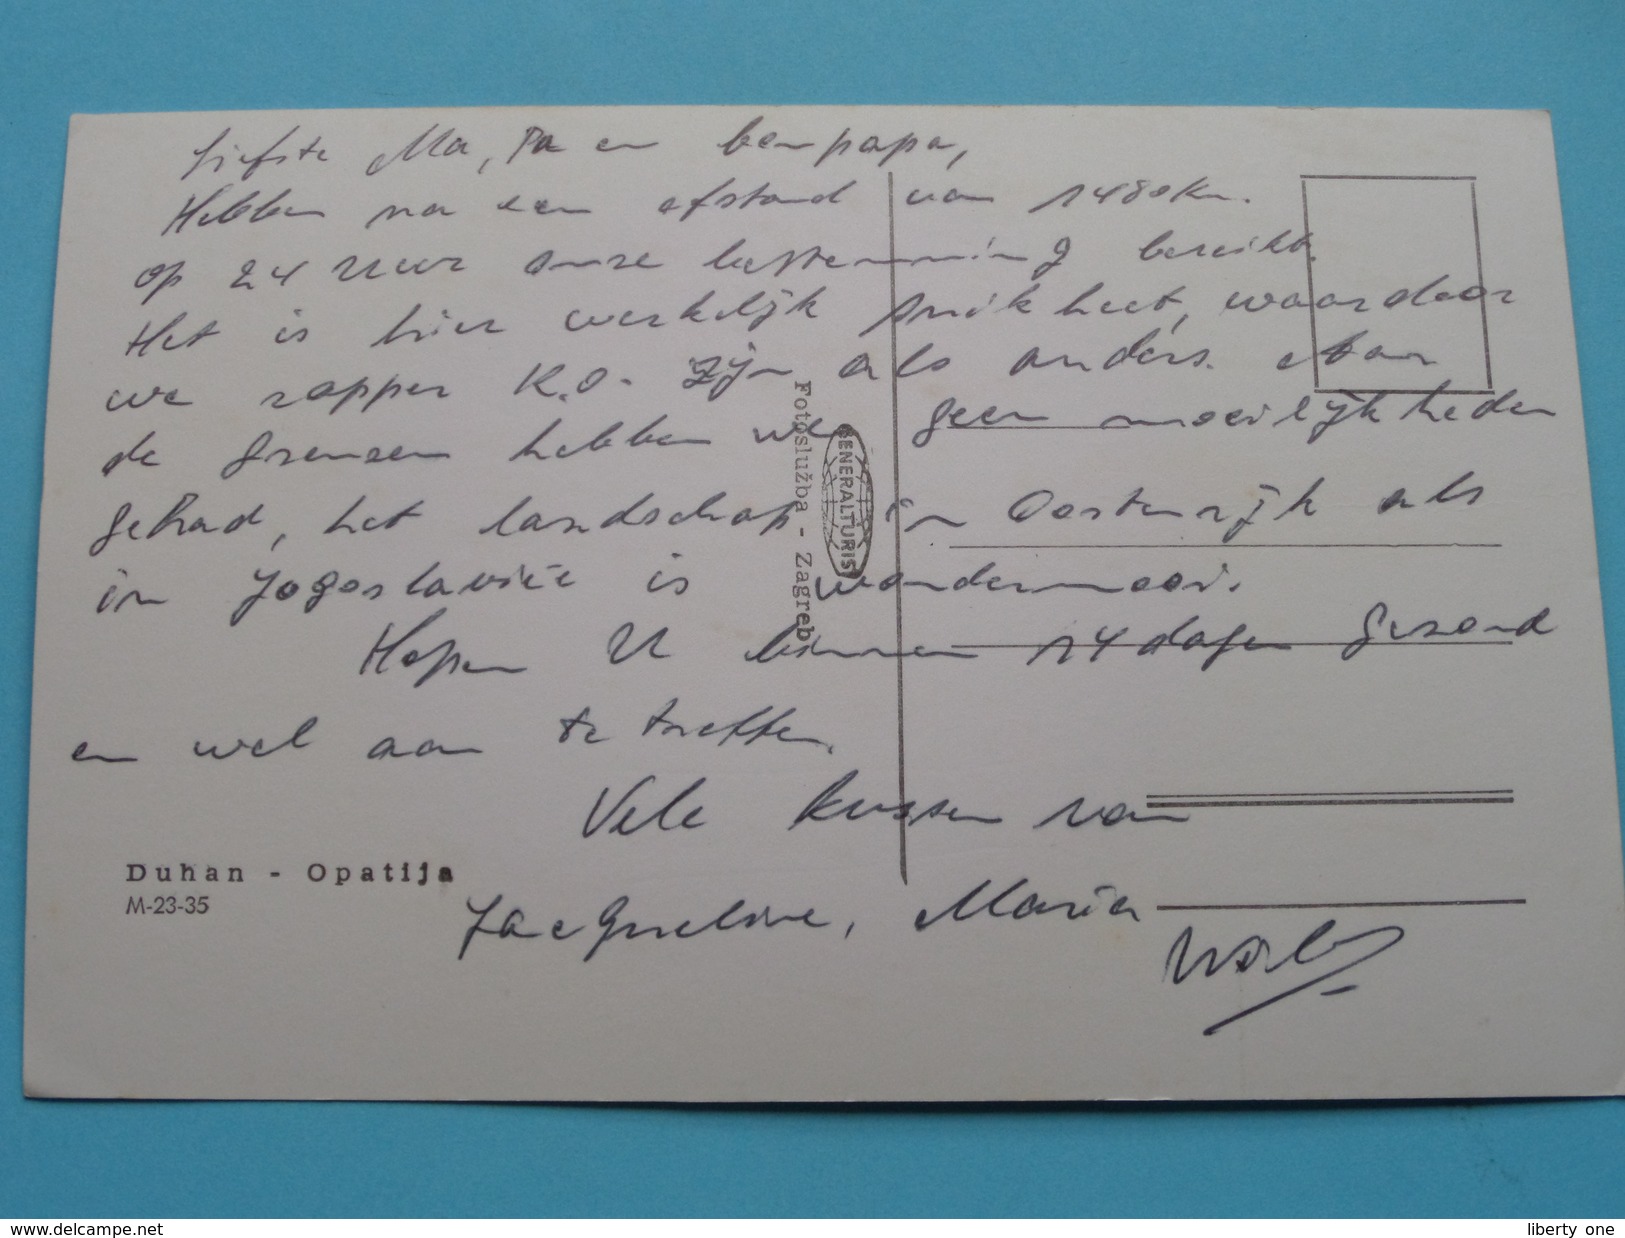 Liefste Ma, Pa en bompapa,
Hebben na een afstand van 1480 Km.
op 24 uur onze bestemming bereikt.
Het is hier werkelijk snikheet, waardoor
we rapper K.O. zijn als anders. Aan
de grenzen hebben we geen moeilijkheden
gehad, het landschap in Oostenrijk als
in Jogoslavië is wondermooi.
Hopen U binnen 14 dagen gezond
en wel aan te treffen.
Vele kussen van
Jacqueline, Maria
Duhan - Opatija
M-23-35
Fotoslužba - Zagreb
GENERALTURIST
www.delcampe.net
liberty one